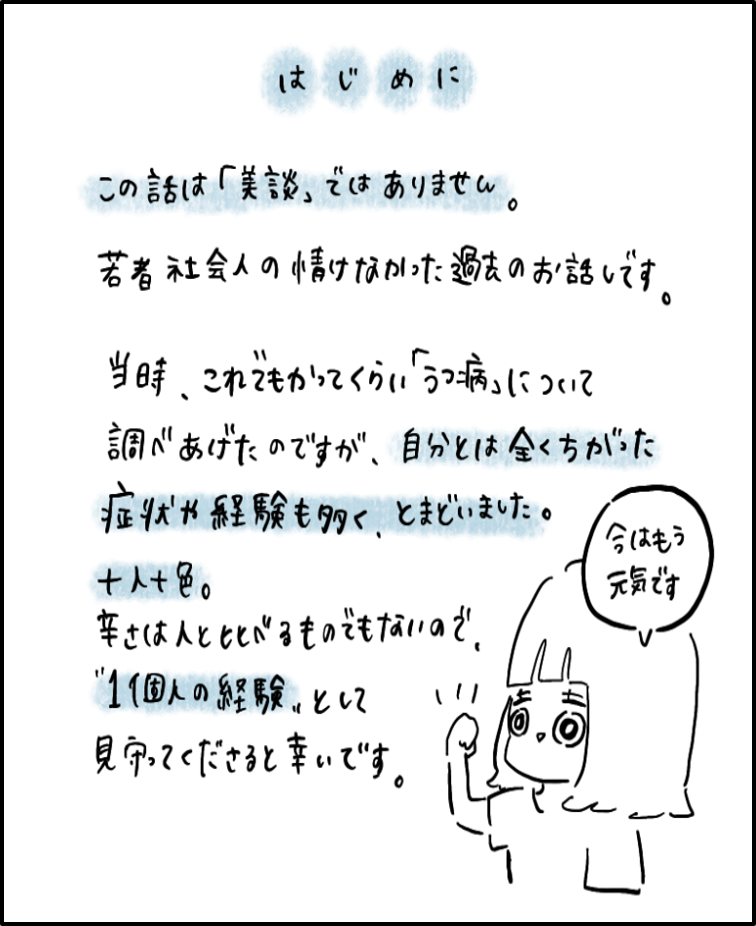 はじめに
この話は「美談」ではありません。
若者社会人の情けなかった過去のお話しです。
当時、これでもかってくらい「うつ病」について
調べあげたのですが、自分とは全くちがった
症状や経験も多く、とまどいました。
十人十色。
辛さは人とくらべるものでもないので、
"1個人の経験"として
見守ってくださると幸いです。
今はもう
元気です